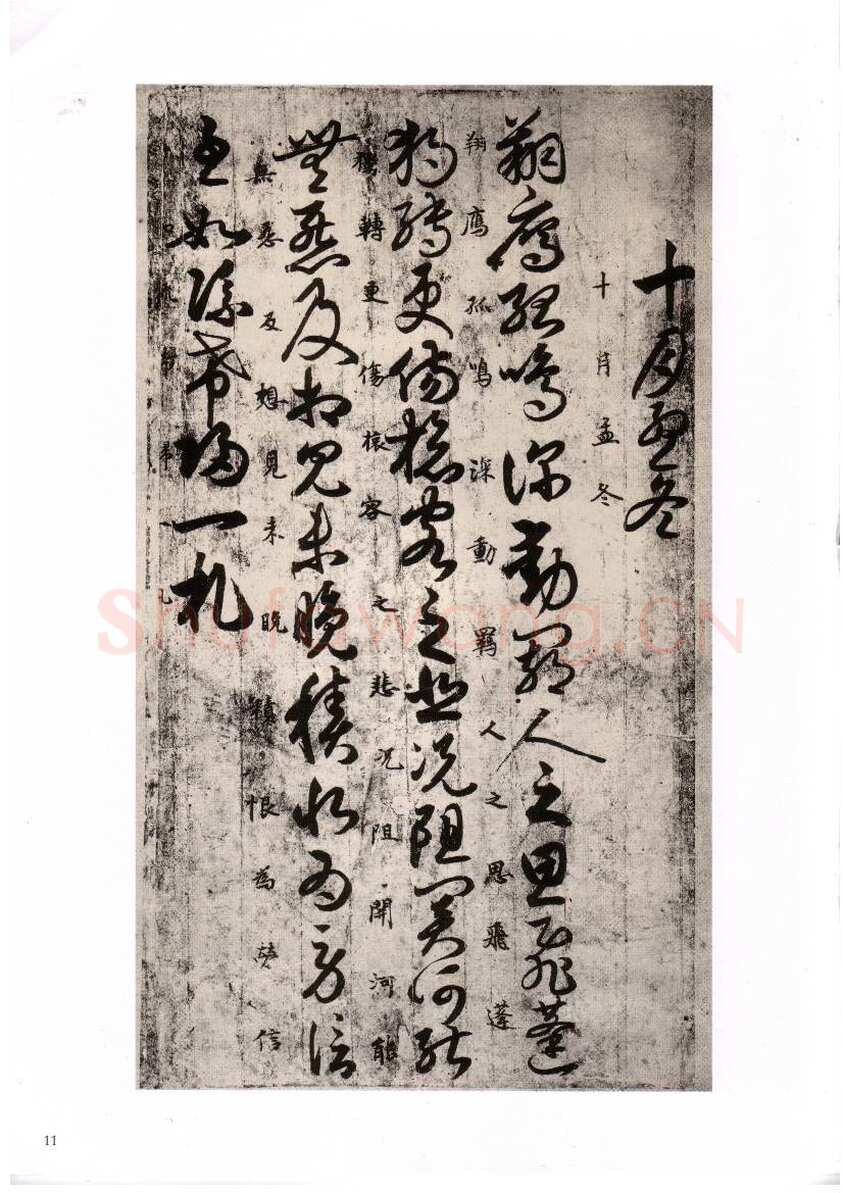 十月孟冬
十月孟冬
翔鷹孤鳴深動羇人之思飛蓬
翔鷹孤鳴深動羇人之思飛蓬
獨轉更傷客之悲況阻關河能
獨轉更傷容之悲况阻開河能
無及想見未晚積恨為勞信
無反想見未晚積恨為勞信
至如希歸一札
ShufaWang.CN
11